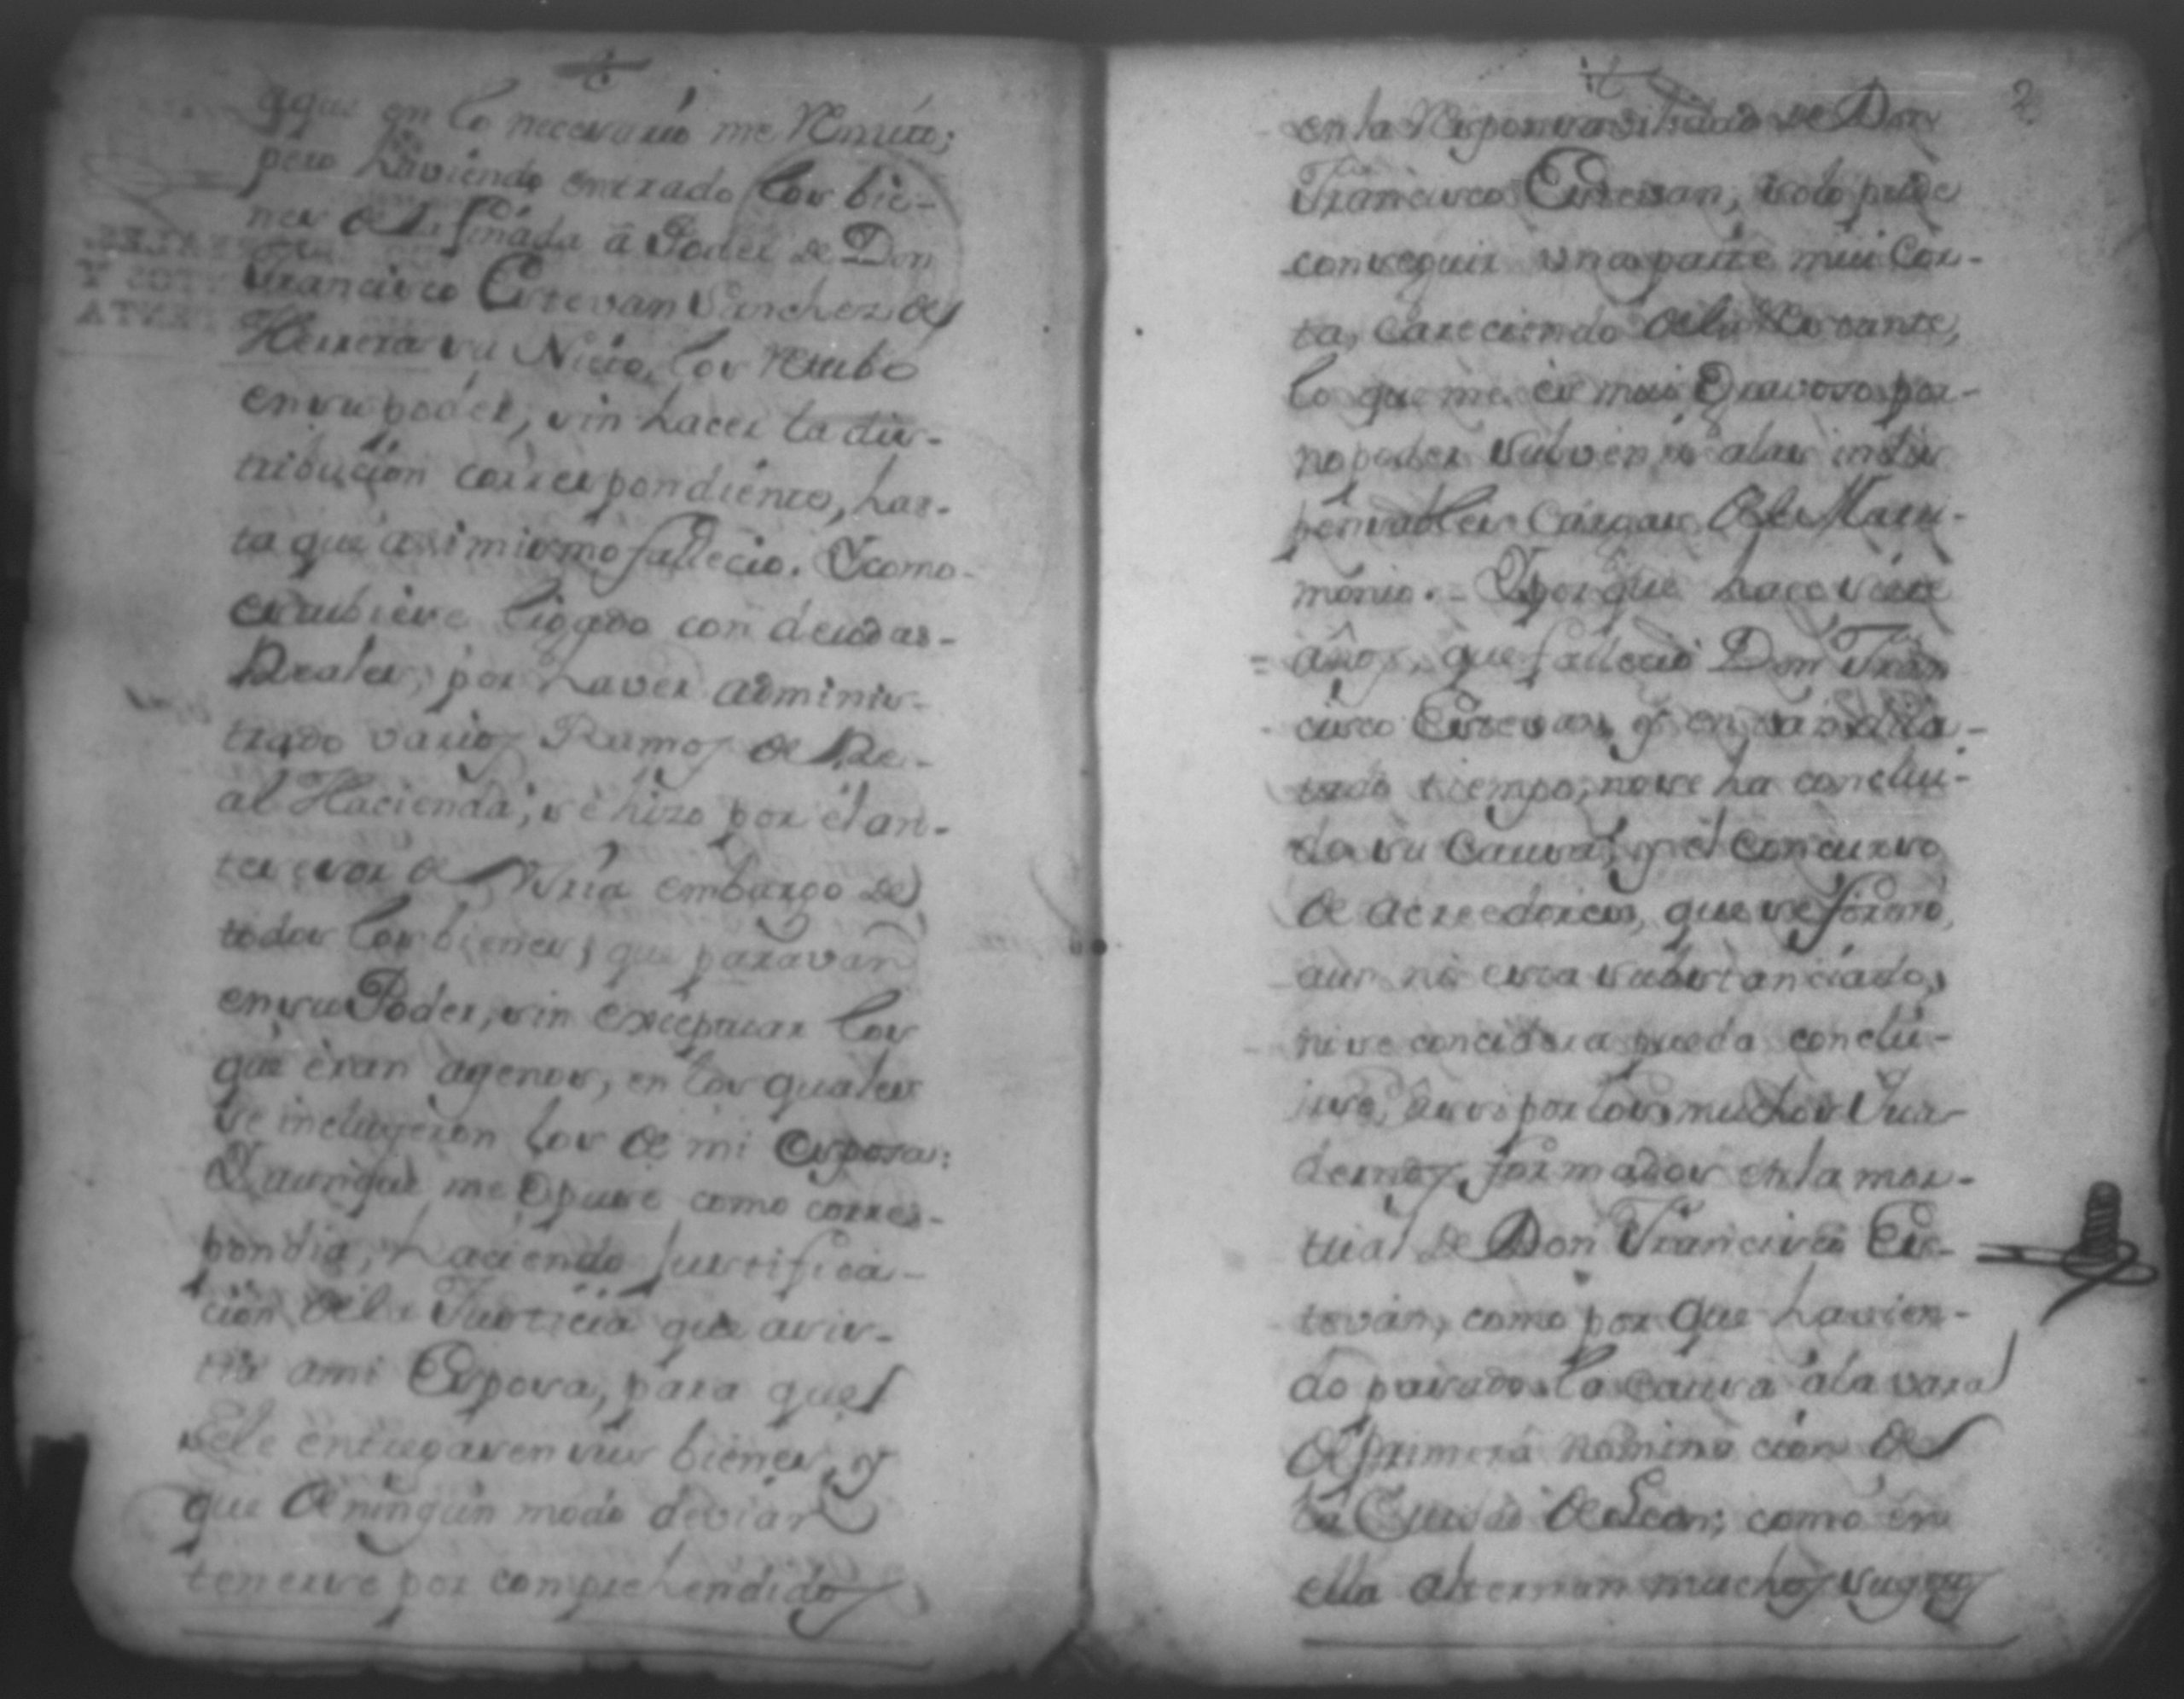 aque en lo necesario me Remito;
pero haviendo entrado los bie-
nes de la finada â Poder de Don
Francisco Estevan Sanchez de
Herrera su Nieto, los Retubo
en su poder, sin hacer la dis-
tribución correspondiente, has-
ta que asi mismo fallecio. Ycomo
estubiese ligado con deudas
Reales, por haver adminis-
trado varios Ramos de Re-
al Hacienda; se hizo por el an-
tecesor de Vsria embargo de
todos los bienes, que paravan
en su Poder, sin exceptuar los
que èran agenos, en los quales
se incluyeron los de mi Esposa:
Yaunque me Opuse como corres-
pondia, haciendo Justifica-
ción dela Justicia que asis-
tia ami Esposa, para que
sele entregasen sus bienes, y
que de ningun modo devian
tenerse por comprehendidos
2
en la Responsavilidad de Don
Francisco Estevan, solo pude
conseguir una parte mui Cor-
ta, careciendo dela Restante,
lo que me es mui Gravoso por
no poder subvenir alas indis
pensables Cargas del Matri-
monio. Yporque hace siete
años, que fallecio Don Fran
cisco Estevan, y en tan dila-
tado tiempo, nose ha conclui-
do su Causa, y el Concurso
de acreedores, que se formó,
aun no esta substanciado,
ni se concidera pueda conclu-
irse, asi por los muchos Qua-
dernos formados en la mor-
tual de Don Francisco Es-
tevan, como por que havien-
do pasado la causa âla vara
de primera nominacion de
la Ciudad de Leon; como en
ella alternan muchos Sugetos